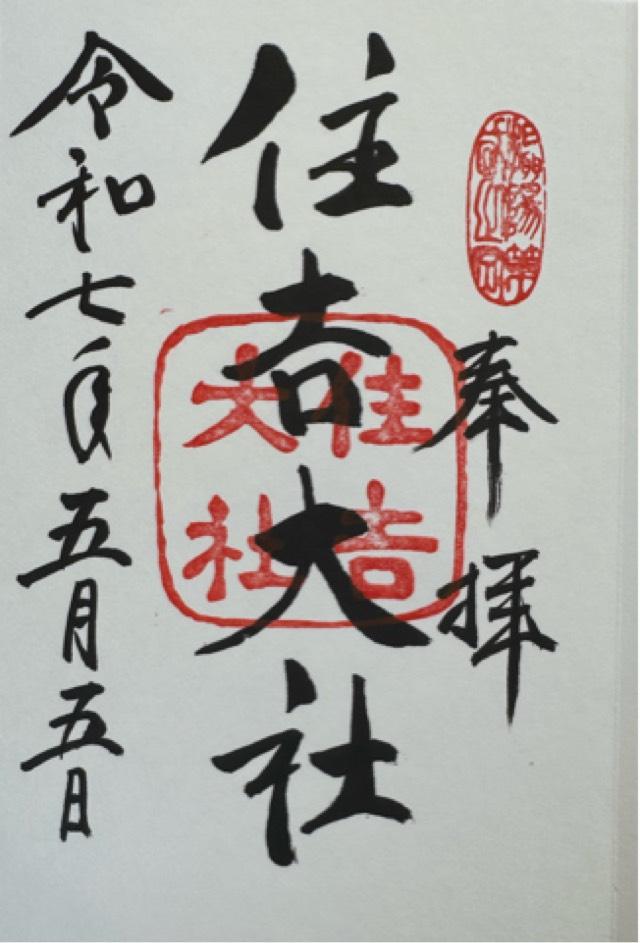 奉拝
住吉大社
住吉
大社
令和七年五月五日